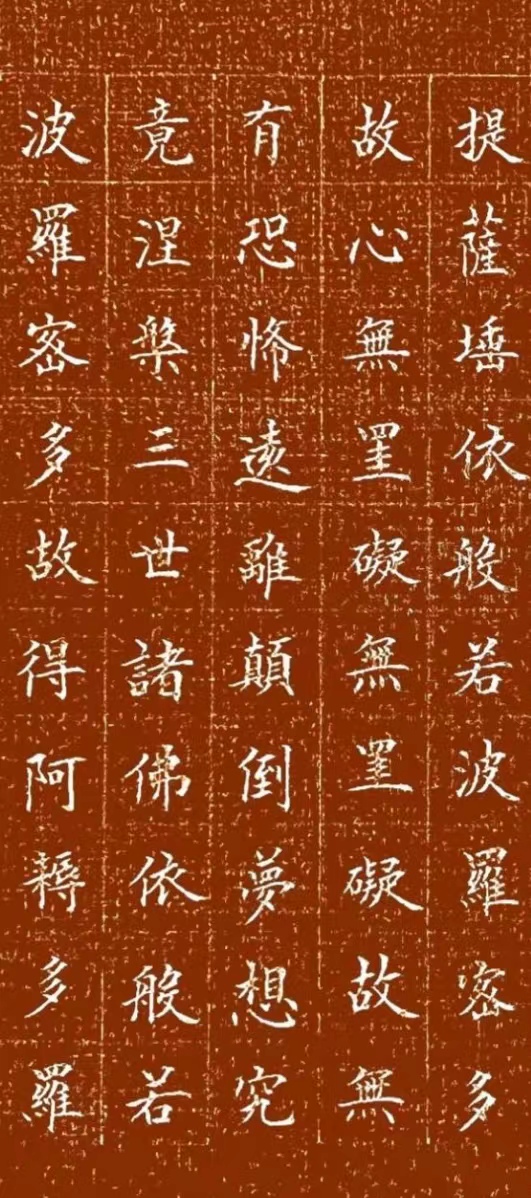 提薩埵依般若波羅密多
故心無罣礙無罣礙故無
有恐怖遠離顛倒夢想究
竟涅槃三世諸佛依般若
波羅密多故得阿耨多羅